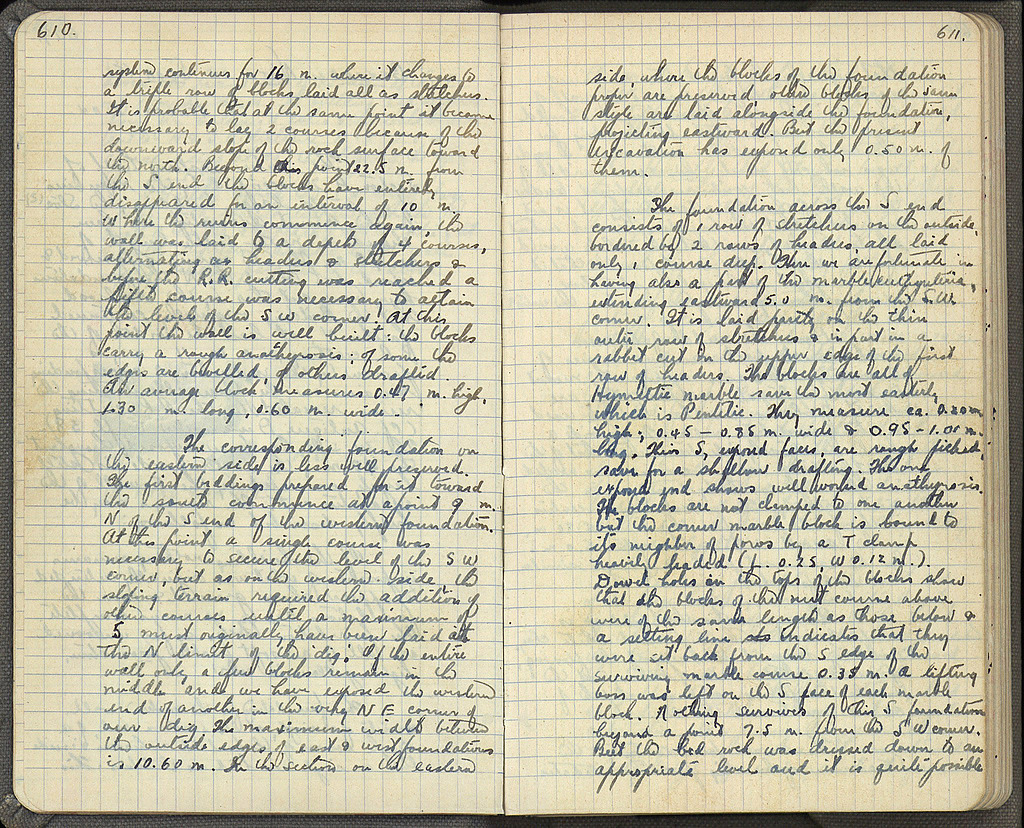 610.
system continues for 16 m. where it changes to
a triple row of blocks laid all as stretchers.
It is probable that at the same point it became
necessary to lay 2 courses because of the
downward slope of the rock surface toward
the north. Beyond this point 22.5 m. from
the S end the blocks have entirely
disappeared for an interval of 10 m.
Where the ruins commence again, the
wall was laid to a depth of 4 courses,
alternating as headers & stretchers &
before the R.R. cutting was reached a
fifth course was necessary to attain
the level of the SW corner. At this
point the wall is well built: the blocks
carry a rough anathyrosis: of some the
edges are bevelled, of others drafted.
An average block measures 0.47 m. high,
1.30 m. long, 0.60 m. wide.
The corresponding foundation on
the eastern side is less well preserved.
The first beddings prepared for it toward
the south commence at a point 9 m.
N of the S end of the western foundation.
At this point a single course was
necessary to secure the level of the SW
corner, but as on the western side, the
sloping terrain required the addition of
other courses until a maximum of
5 must originally have been laid at
the N limit of the dig. Of the entire
wall only a few blocks remain in the
middle and we have exposed the western
end of another in the very NE corner of
our dig. The maximum width between
the outside edges of east & west foundations
is 10.60 m. In the section on the eastern
611.
side where the blocks of the foundation
proper are preserved, other blocks of the same
style are laid alongside the foundation,
projecting eastward. But the present
excavation has exposed only 0.50 m. of
them.
The foundation across the S end
consists of 1 row of stretchers on the outside,
bordered by 2 rows of headers, all laid
only 1 course deep. Here we are fortunate in
having also a part of the marble euthynteria,
extending eastward 5.0 m. from the S.W.
corner. It is laid partly on the thin
outer row of stretchers & in part in a
rabbit cut in the upper edge of the first
row of headers. The blocks are all of
Hymettic marble save the most easterly
which is Pentelic. They measure ca. 0.30 m
high; 0.45 – 0.85 m. wide & 0.95 – 1.01 m.
long. Their S, exposed faces, are rough picked,
save for a shallow drafting. The one
exposed end shows well worked anathyrosis.
The blocks are not clamped to one another
but the corner marble block is bound to
its neighbor of poros by a T clamp
heavily leaded (L. 0.25, W 0.12 m.).
Dowel holes in the tops of the blocks show
that the blocks of the next course above
were of the same length as those below &
a setting line indicates that they
were set back from the S edge of the
surviving marble course 0.35 m. A lifting
boss was left on the S face of each marble
block. Nothing survives of this S foundation
beyond a point 7.5 m. from the SW corner.
But the bed rock was dressed down to an
appropriate level and it is quite possible